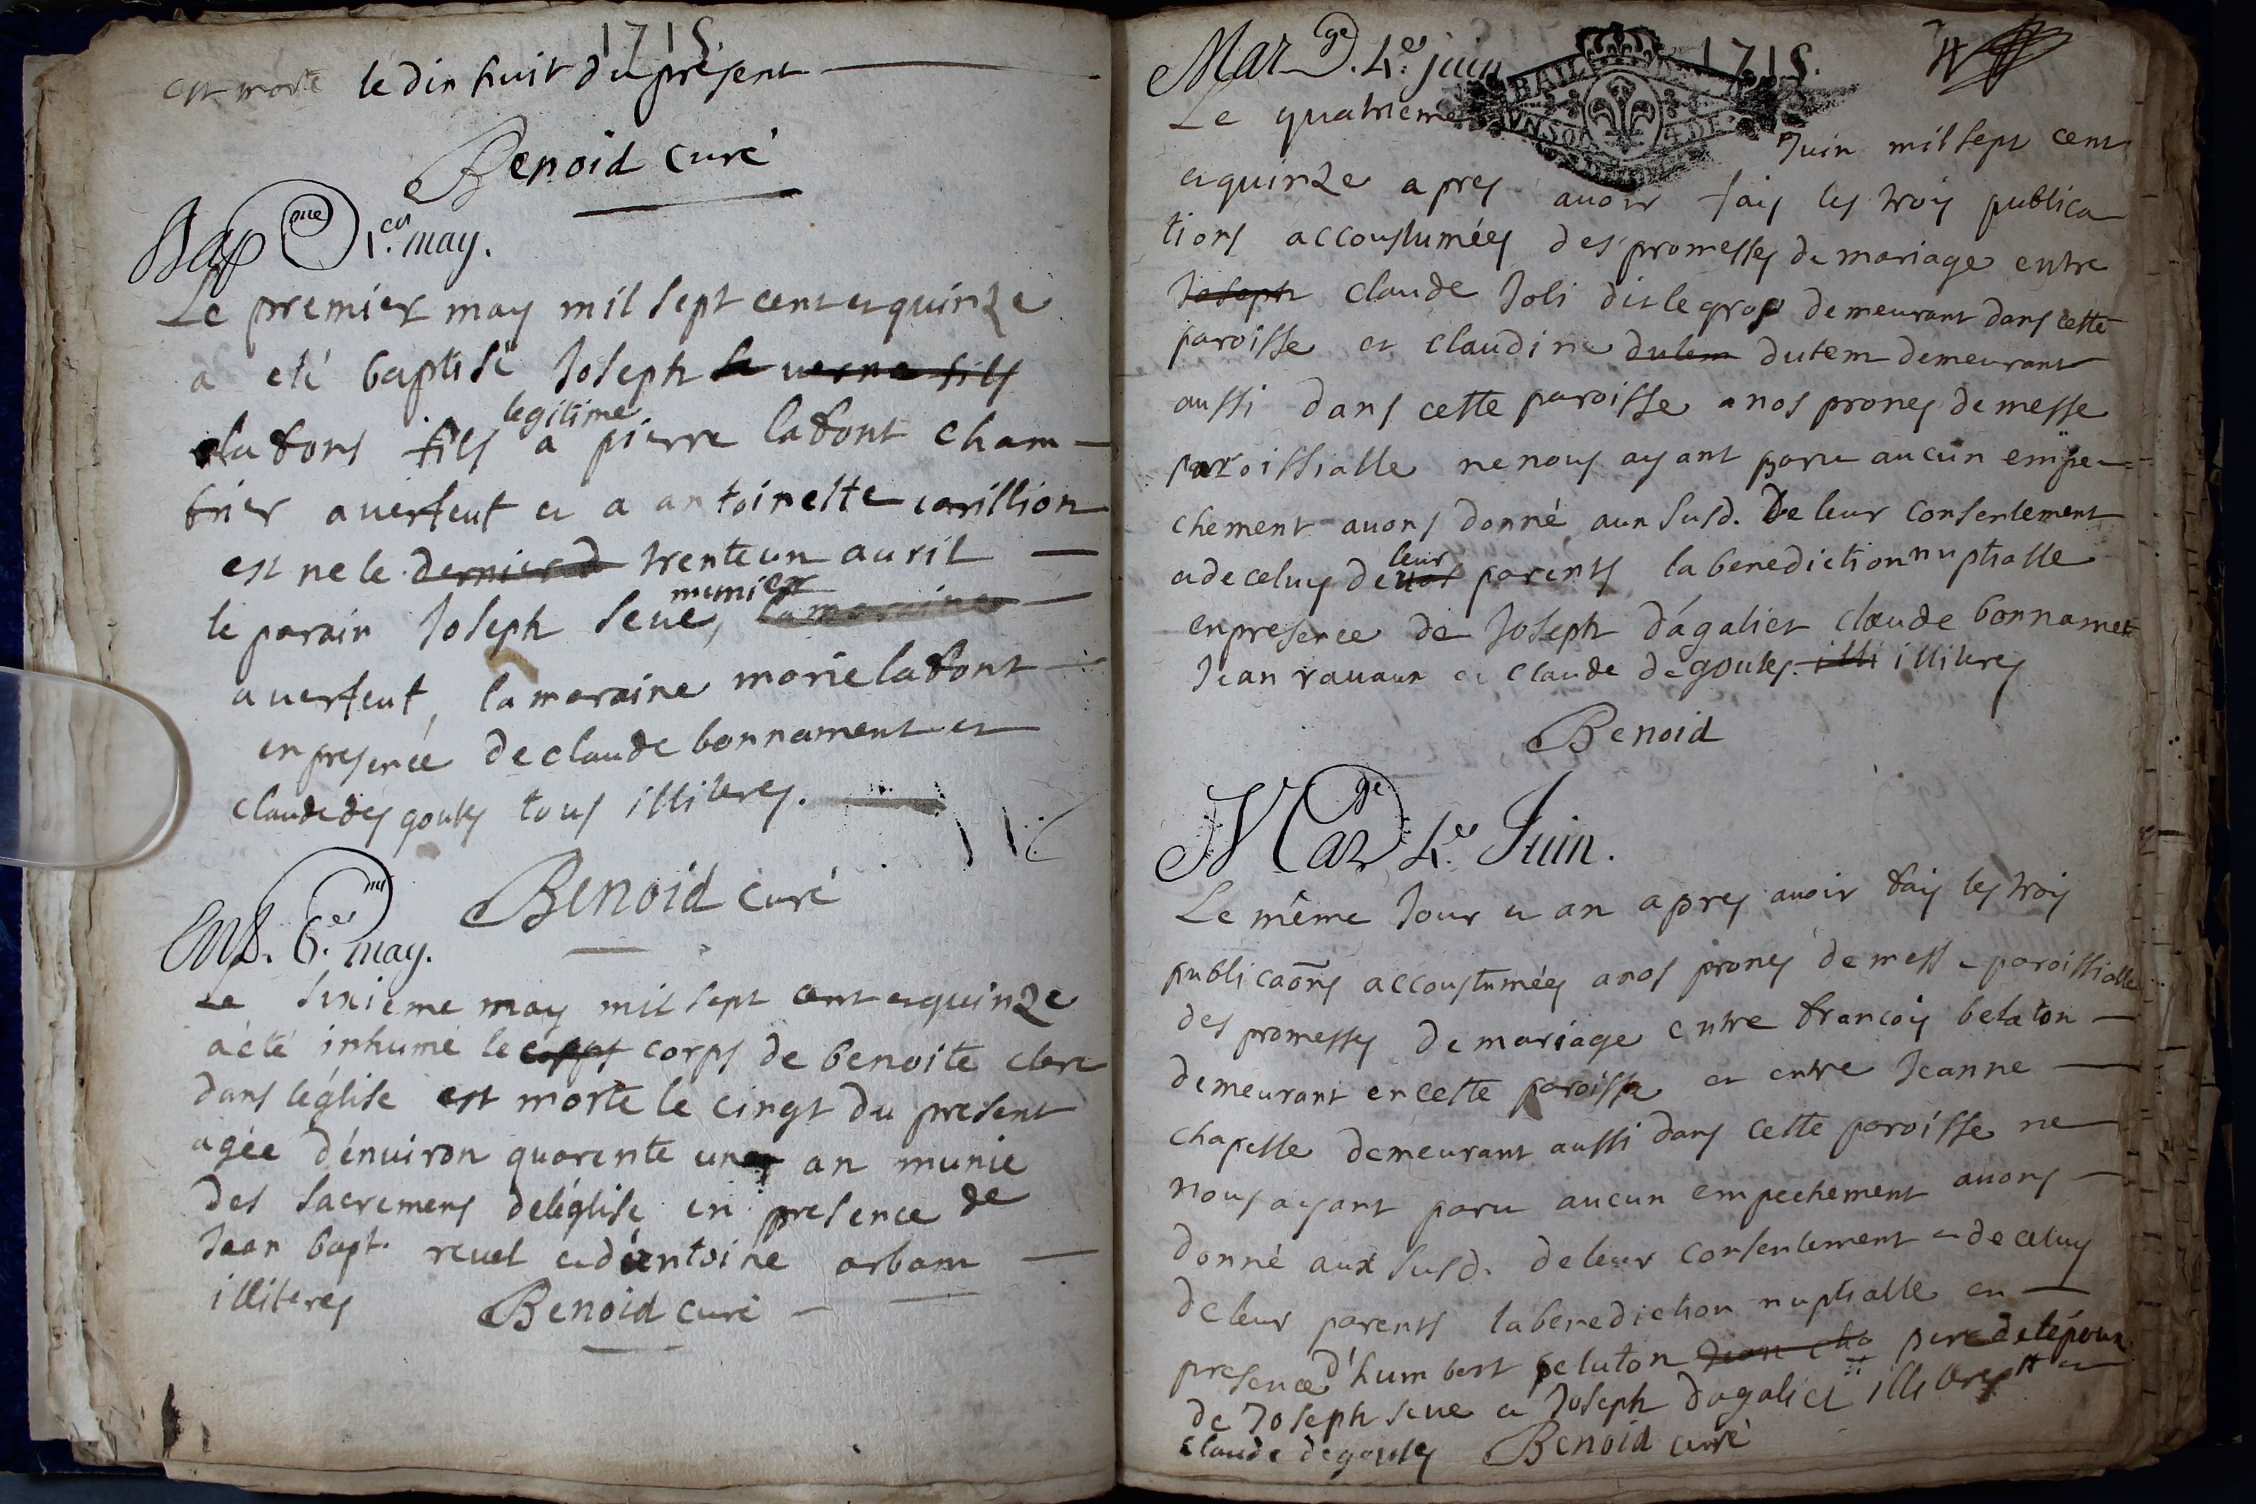 1715.
est morte le dix huit du present
Benoid curé
Bap me 1.er may.
Le premier may mil sept cent et quinze
a eté baptisé Joseph la verne fils
lafont fils legitime a pierre lafont cham-
brier a verfeut et a antoinette carillion
est ne le dernier d trente un auril
le parain Joseph seue, munier la maraine
a verfeut, la maraine marie lafont
en presence de claude bonnament et
claude des goutes tous illiteres.
Benoid curé
Ent. 6.e may.
Le sixieme may mil sept cent et quinze
a eté inhumé le corps corps de benoite clerc
dans l'église est morte le cinqt du present
agée d'énuiron quarente un an munie
des sacremens de léglise en presence de
Jean bapt. reuel et d'antoine arbam
illiteres Benoid curé
Mar ge. 4.e juin 1715.
Le quatrieme Juin mil sept cent
et quinze apres avoir fais les trois publica
tions accoustumées des promesses de mariage entre
Joseph claude Joli dit le gros demeurant dans cette
paroisse et claudine dutem dutem demeurant
aussi dans cette paroisse a nos prones de messe
paroissialle ne nous ayant paru aucun empe-
chement auons donné aux susd. De leur consentement
et de celuy de nos leur parents la benediction nuptialle
en presence de Joseph d'ágalier claude bonnamet
Jean rauaux et claude degoutes. illi illiteres
Benoid
Mar ge 4.e Juin.
Le même Jour et an apres avoir fais les trois
publicaons accoustumées a nos prones de messe paroissialle
des promesses de mariage entre francois belaton
demeurant en cette paroisse et entre Jeanne
chapelle demeurant aussi dans cette paroisse ne
nous ayant paru aucun empechement auons
donné aux susd. de leur consentement et de celuy
de leur parents la benediction nuptialle en
presence d'humbert peluton Jean cha pere de lépoux
de Joseph seue et Joseph dagalier illiteres et
claude degoutes Benoid curé